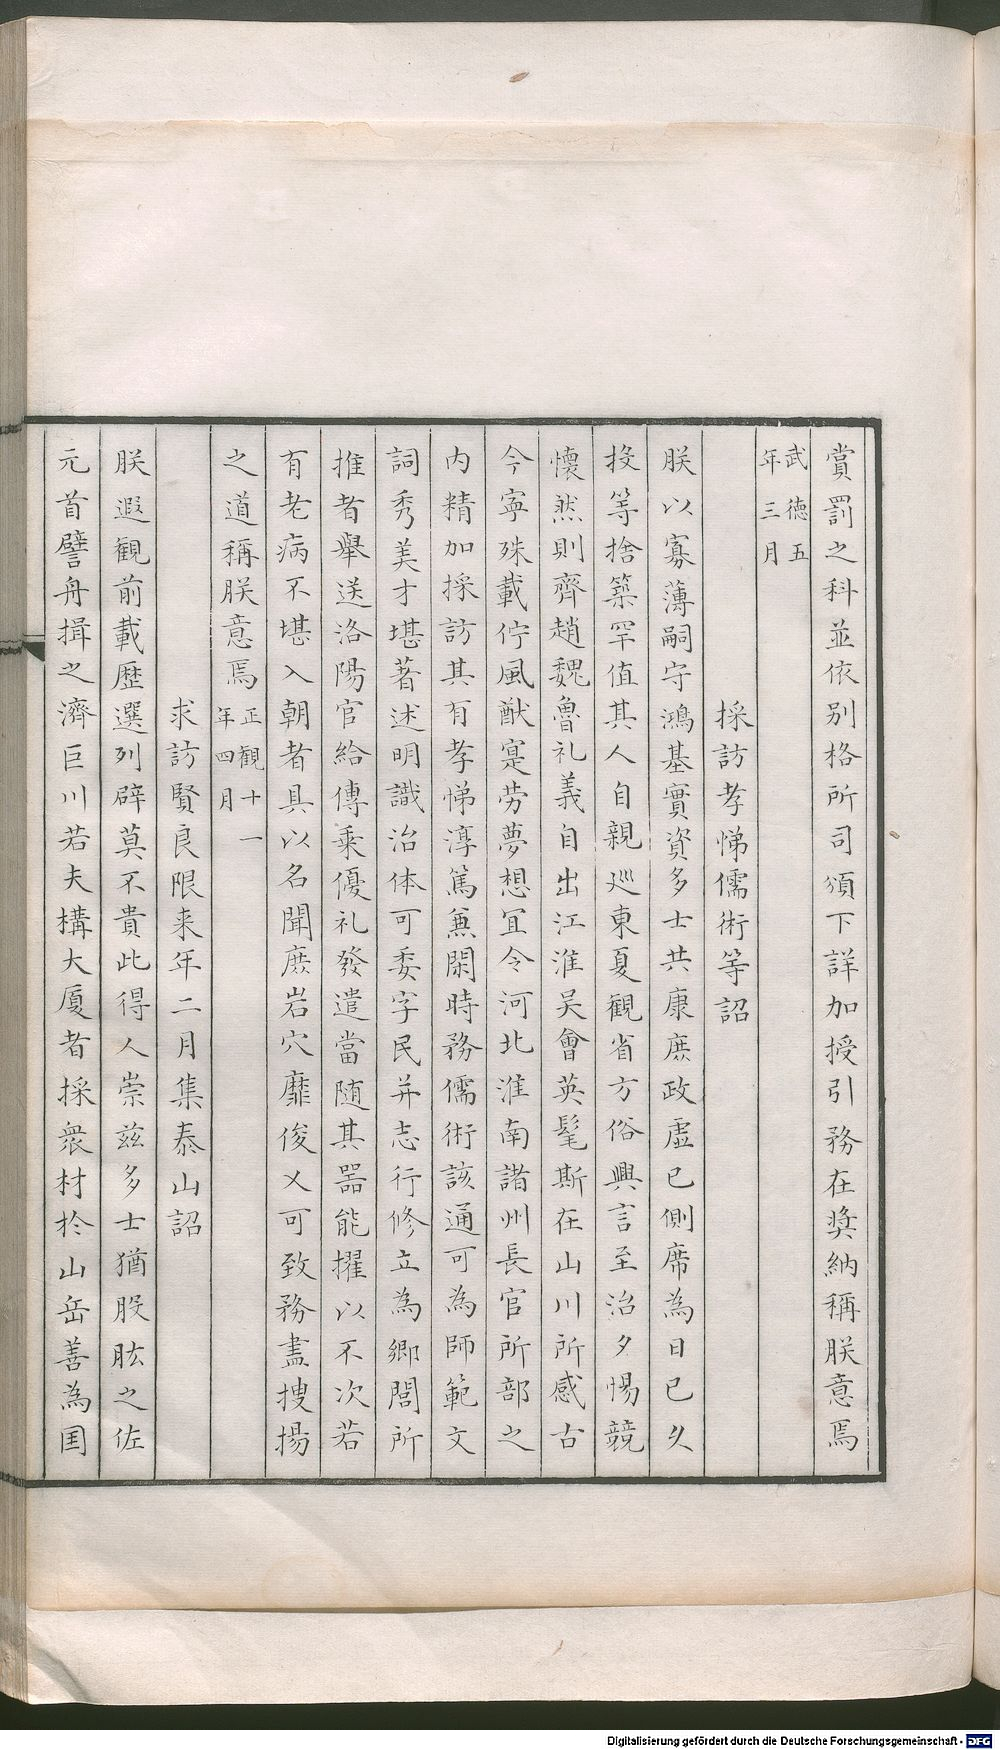 賞罰之科並依別格所司頒下詳加授引務在奨納稱朕意焉
武德五
年三月
採訪孝悌儒術等詔
朕以寡薄嗣守鴻基實資多士共康庶政虚已側席為日已久
投等捨築罕值其人自親巡東夏観省方俗興言至治夕惕競
懐然則齊趙魏魯礼義自出江淮吴會英髦斯在山川所感古
今寧殊載佇風猷寔劳夢想冝令河北淮南諸州長官所部之
内精加採訪其有孝悌淳篤兼閑時務儒術該通可為師範文
詞秀美才堪著述明識治体可委字民并志行修立為鄉閭所
推者舉送洛陽官給傳乗優礼發遣當随其器能擢以不次若
有老病不堪入朝者具以名聞庶岩穴靡俊乂可致務盡搜揚
之道稱朕意焉
正觀十一
年四月
求訪賢良限来年二月集泰山詔
朕遐観前載歴選列辟莫不貴此得人崇兹多士猶股肱之佐
元首譬舟揖之濟巨川若夫構大厦者採衆材扵山岳善為国
Digitalisierung gefördert durch die Deutsche Forschungsgemeinschaft - DFG